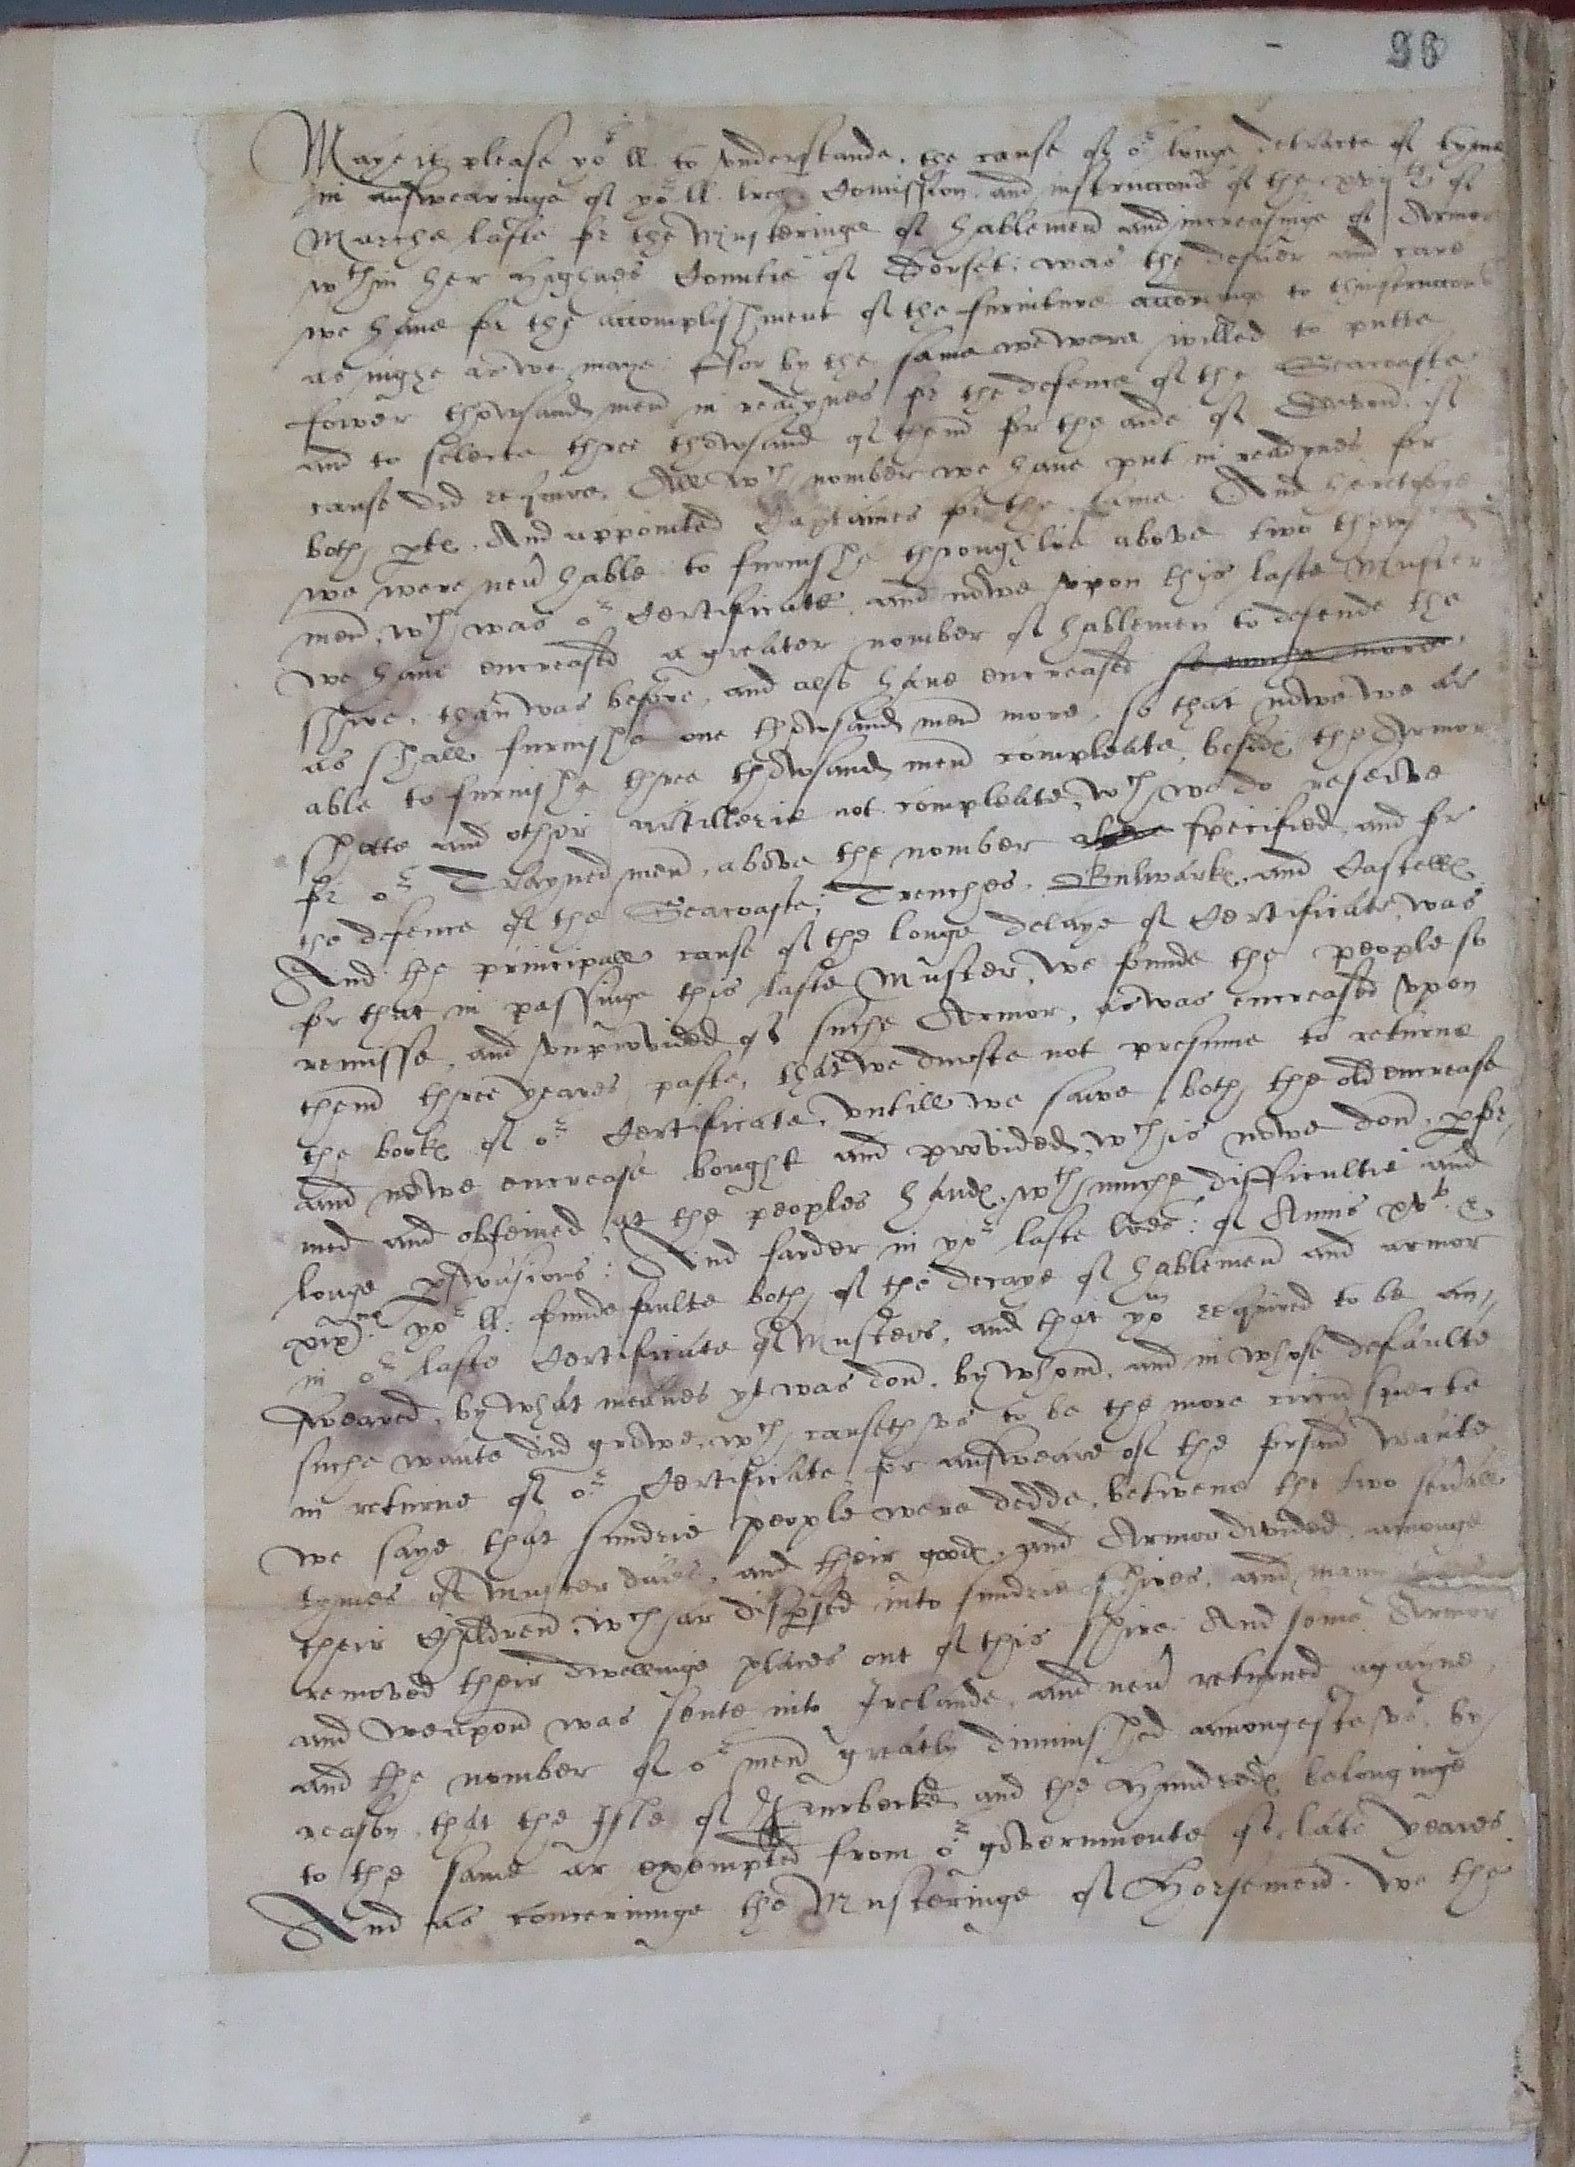 96
Maye it please yor ll. to vnderstande, the cause of or longe detracte of tyme
in answearinge of yor ll. lres, Comission, and instruccons of the xvijth of
Marche laste for the Musteringe of hablemen and increasinge of Armor
wthin her highnes Countie of Dorset: was the desier and care
we haue for the accomplishment of the furniture accordinge to thinstruccons
as nighe as we maye. Ffor by the same we were willed to putte
fower thowsand men in readynes for the defence of the Seacoaste
and to selecte three thowsand of them for the aide of Devon if
cause did require. All wch nomber we haue put in readynes for
both ptes. And appointed Captaines for the same. And heretofore
we were neuer hable to furnishe throughlie above two thowsand
men, wch was or Certificate, and nowe vpon this laste Muster
we haue encreased a greater nomber of hablemen to defende the
shire, than was before, and also haue encreased so muche more
as shall furnishe one thowsand men more, so that nowe we ar
able to furnishe three thowsand men compleate, besides the Armor
shotte and other artillerie not compleate, wch we do reserve
for or Trayned men, above the nomber specified, and for
the defence of the Seacoaste, Trenches, Bulwarkes, and Castelles
And the principall cause of the longe delaye of Certificate, was
for that in passinge this laste Muster, we founde the people so
remisse, and vnprovided of suche Armor, as was encreased vpon
them three yeares paste, that we durste not presume to returne
the bookes of or Certificate, vntill we sawe both the old encrease
and newe encrease bought and provided, wch is nowe don, pfor,,
med and obteined at the peoples handes, wth muche difficultie and
longe pswasions: And farder in yor laste lres: of Annis xvto. &
xixno. yor ll: founde faulte both of the decaye of hablemen and armor
in or laste Certificate of Musters, and that yor required to be an,,
sweared, by what meanes yt was don, by whom, and in whose defaulte
suche wante did growe, wch causeth vs to be the more circumspecte
in returne of or Certificate, for answeare of the forsaid wante
we saye that sundrie people were dedde, betwene the two seuall
tymes of Muster daies, and their goodes, and Armor divided amonge
their Children, wch ar dispsed into sundrie shires, and many
removed their dwellinge places out of this shire. And some Armor
and weapon was sente into Irelande, and neuer returned agayne,
and the nomber of or men greatly diminished amongeste vs, by
reason that the Isle of Purbecke and the Hundredes belonginge
to the same ar exempted from or governmente of late yeares.
And as concerninge the Musteringe of Horsemen. We the